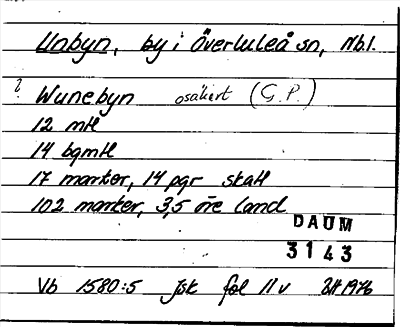 Unbyn, by i Överluleå sn, Nb.l.
? Wunebyn osäkert (G.P.)
12 mtl
14 bgmtl
17 marker, 14 pgr skatt
102 marker, 3,5 öre land
DAUM
3143
Vb 1580:5 jsk fol 11 v 1976